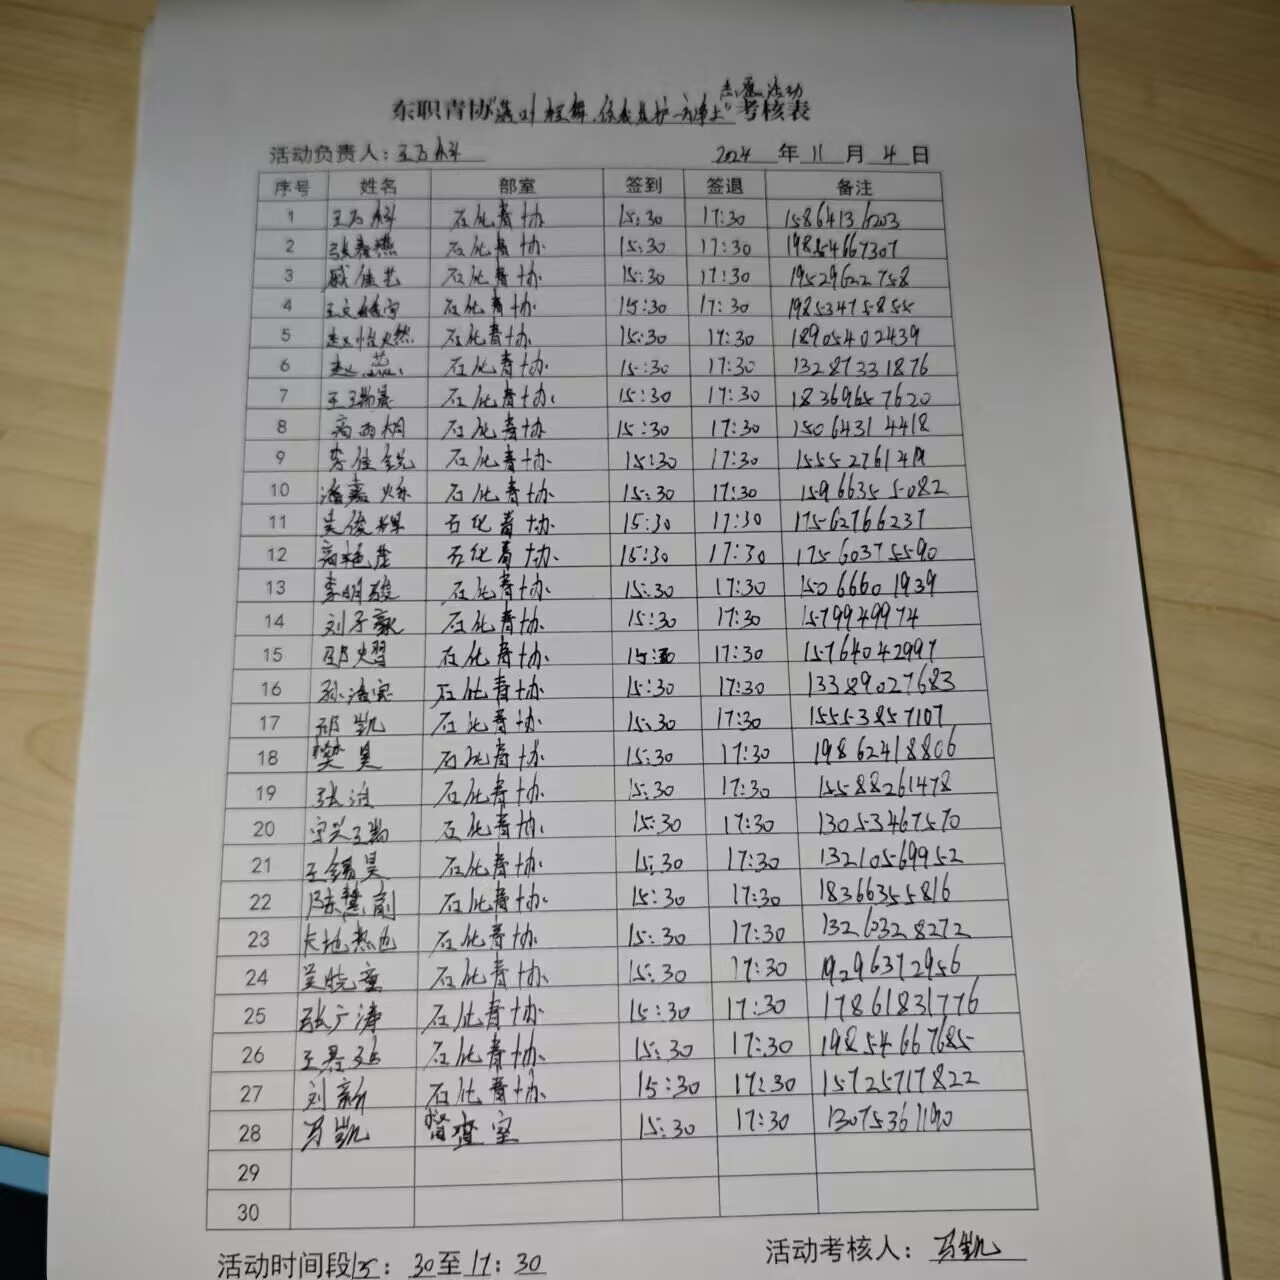 志愿活动
东职青协"落叶轻舞,你我共护一方净土"考核表
活动负责人:王万科 2024 年 11 月 4 日
序号 姓名 部室 签到 签退 备注
1 王万科 石化青协 15:30 17:30 15864136203
2 张春燕 石化青协 15:30 17:30 19854667307
3 戚佳艺 石化青协 15:30 17:30 19529622758
4 石化青协 15:30 17:30 19853475855
5 赵怡然 石化青协 15:30 17:30 18905402439
6 赵蕊 石化青协 15:30 17:30 13287331876
7 王瑞晨 石化青协 15:30 17:30 18369657620
8 高雨桐 石化青协 15:30 17:30 15064314418
9 李佳锐 石化青协 15:30 17:30
10 潘嘉烁 石化青协 15:30 17:30 15966355082
11 吴俊辉 石化青协 15:30 17:30 17562766237
12 高艳茂 石化青协 15:30 17:30 17560375590
13 李明骏 石化青协 15:30 17:30 15066601939
14 刘子豪 石化青协 15:30 17:30 1579949974
15 石化青协 15:30 17:30 15764042997
16 石化青协 15:30 17:30 13389027683
17 邵凯 石化青协 15:30 17:30 15553857107
18 樊昊 石化青协 15:30 17:30 19862418806
19 石化青协 15:30 17:30 15588261478
20 石化青协 15:30 17:30 13053467570
21 王锦昊 石化青协 15:30 17:30 13210569952
22 陈慧剑 石化青协 15:30 17:30 18366355816
23 石化青协 15:30 17:30 13260328272
24 吴晓童 石化青协 15:30 17:30 19296372956
25 张广涛 石化青协 15:30 17:30 17861831776
26 石化青协 15:30 17:30 19854667685
27 刘新 石化青协 15:30 17:30 15725717822
28 马凯 督查室 15:30 17:30 13075361190
29
30
活动时间段15:30至17:30 活动考核人:马凯